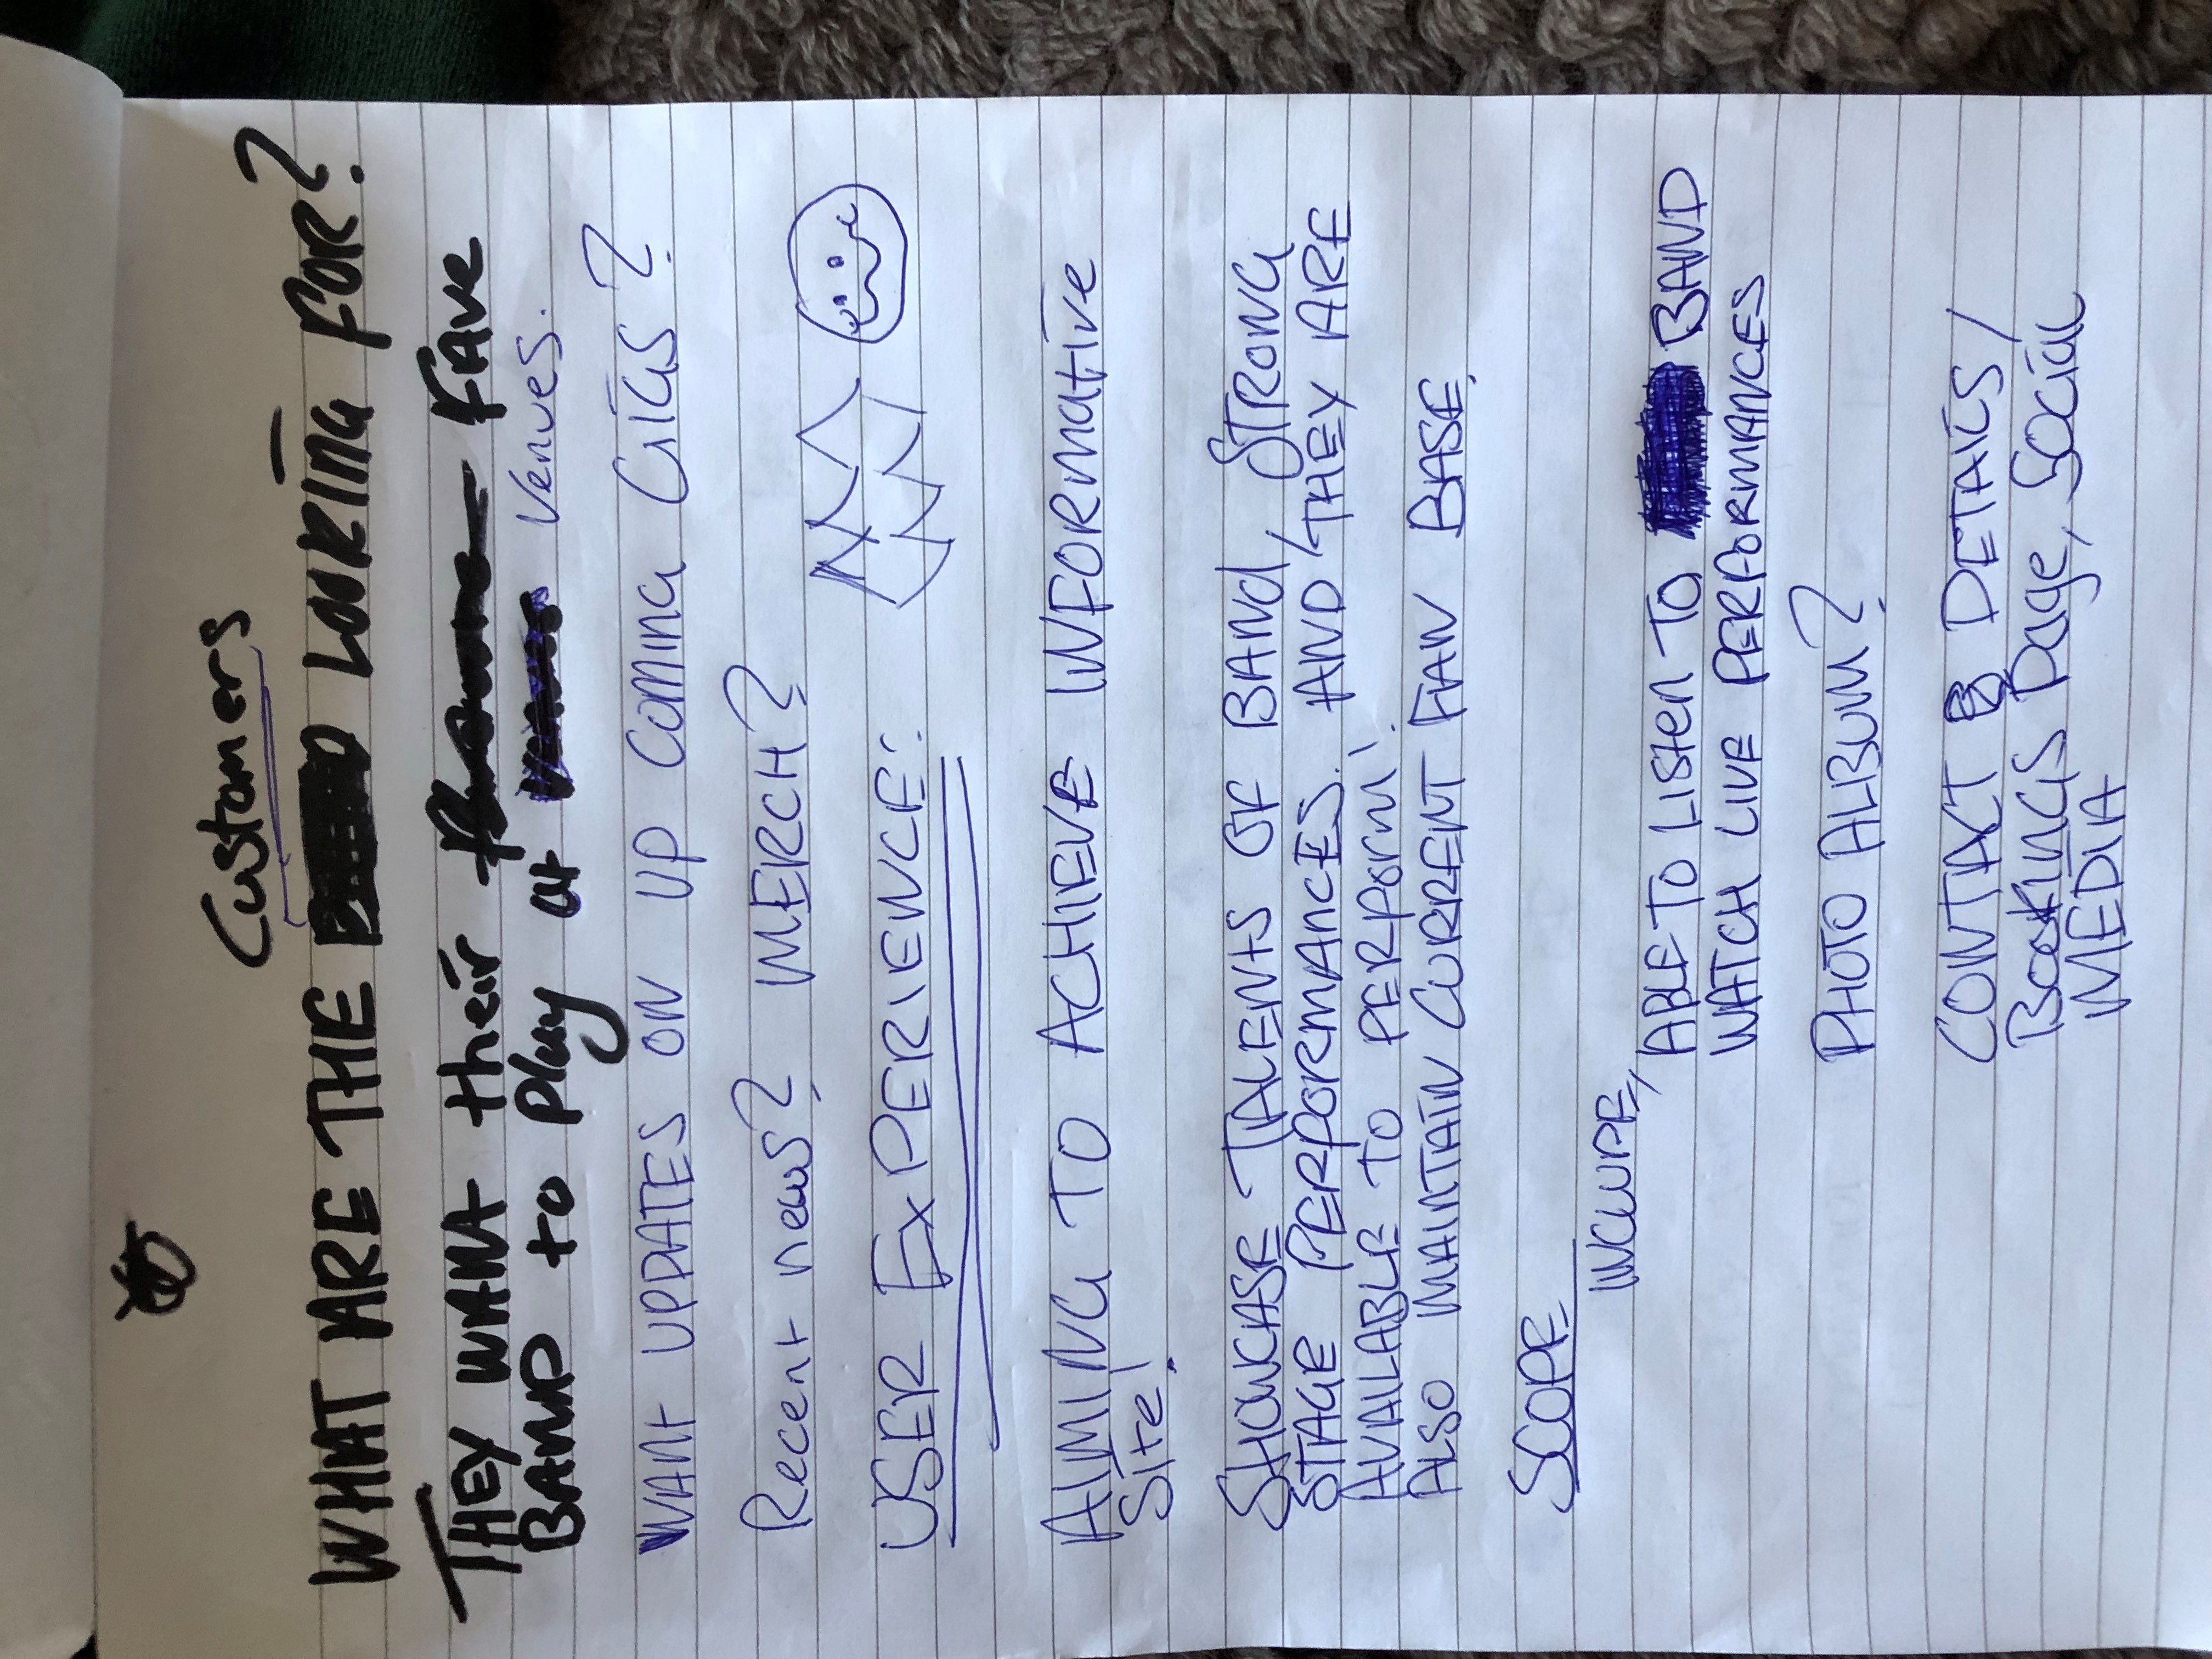 Customers
WHAT ARE THE LOOKING FOR?
THEY WANT their FAVE
BAND to Play at Venues.
WANT UPDATES ON UP Coming GiGS?
Recent news? MERCH?
USER EXPERIENCE:
AIMING TO ACHIEVE INFORmative
Site!
SHOWCASE TALENTS OF BAND, STRONG
STAGE PERFORMANCES. AND/THEY ARE
AVAILABLE TO PERFORM!
ALSO MAINTAIN CURRENT FAN BASE,
SCOPE
INCLUDE,
ABLE TO LISTEN TO BAND
WATCH LIVE PERFORMANCES
PHOTO ALBUM?
CONTACT DETAILS/
BOOKINGS Page, Social
MEDIA